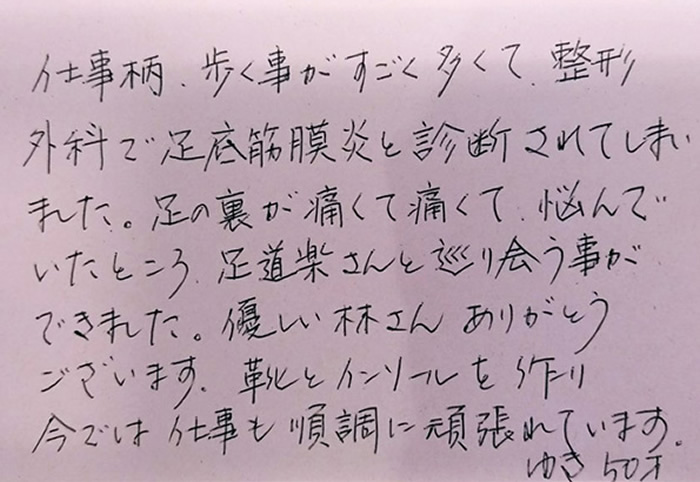 仕事柄、歩く事がすごく多くて、整形
外科で足底筋膜炎と診断されてしまい
ました。足の裏が痛くて痛くて、悩んで
いたところ、足道楽さんと巡り会う事が
できました。優しい林さん ありがとう
ございます。靴とインソールを作り
今では仕事も順調に頑張れています。
ゆき 50才